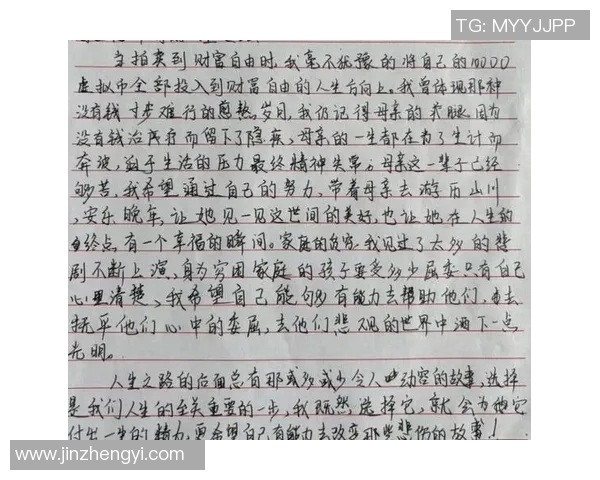 TG: MYYJJPP
当拍卖到财富自由时,我毫不犹豫的将自己的10000
虚拟币全部投入到财富自由的人生方向上。我曾体现那种
没有钱寸步难行的 岁月,我仍记得母亲的 腿因为
没有钱治疗而留下了隐疾,母亲的一生都在为了生计而
奔波,迫于生活的压力最终精神失常。母亲这一辈子已经
够苦,我希望通过自己的努力,带着母亲去游历山川
,安乐晚年,让她见一见这世间的美好,也让她在人生的
终点有一个幸福的瞬间。家庭的贫穷,我见过了太多的悲
剧不断上演,身为穷困家庭的孩子要受多少屈委只有自己
心里清楚,我希望自己能够有能力去帮助他们,去
抚平他们心中的委屈,去他们悲观的世界中洒下一点
光明。
人生之路的后面总有那或多或少令人动容的故事,选择
是我们人生的至关重要的一步,我既然选择它,就会为他它
付出一生的精力,更希望自己有能力去改变那些悲伤的故事!
www.jinzhengyi.com